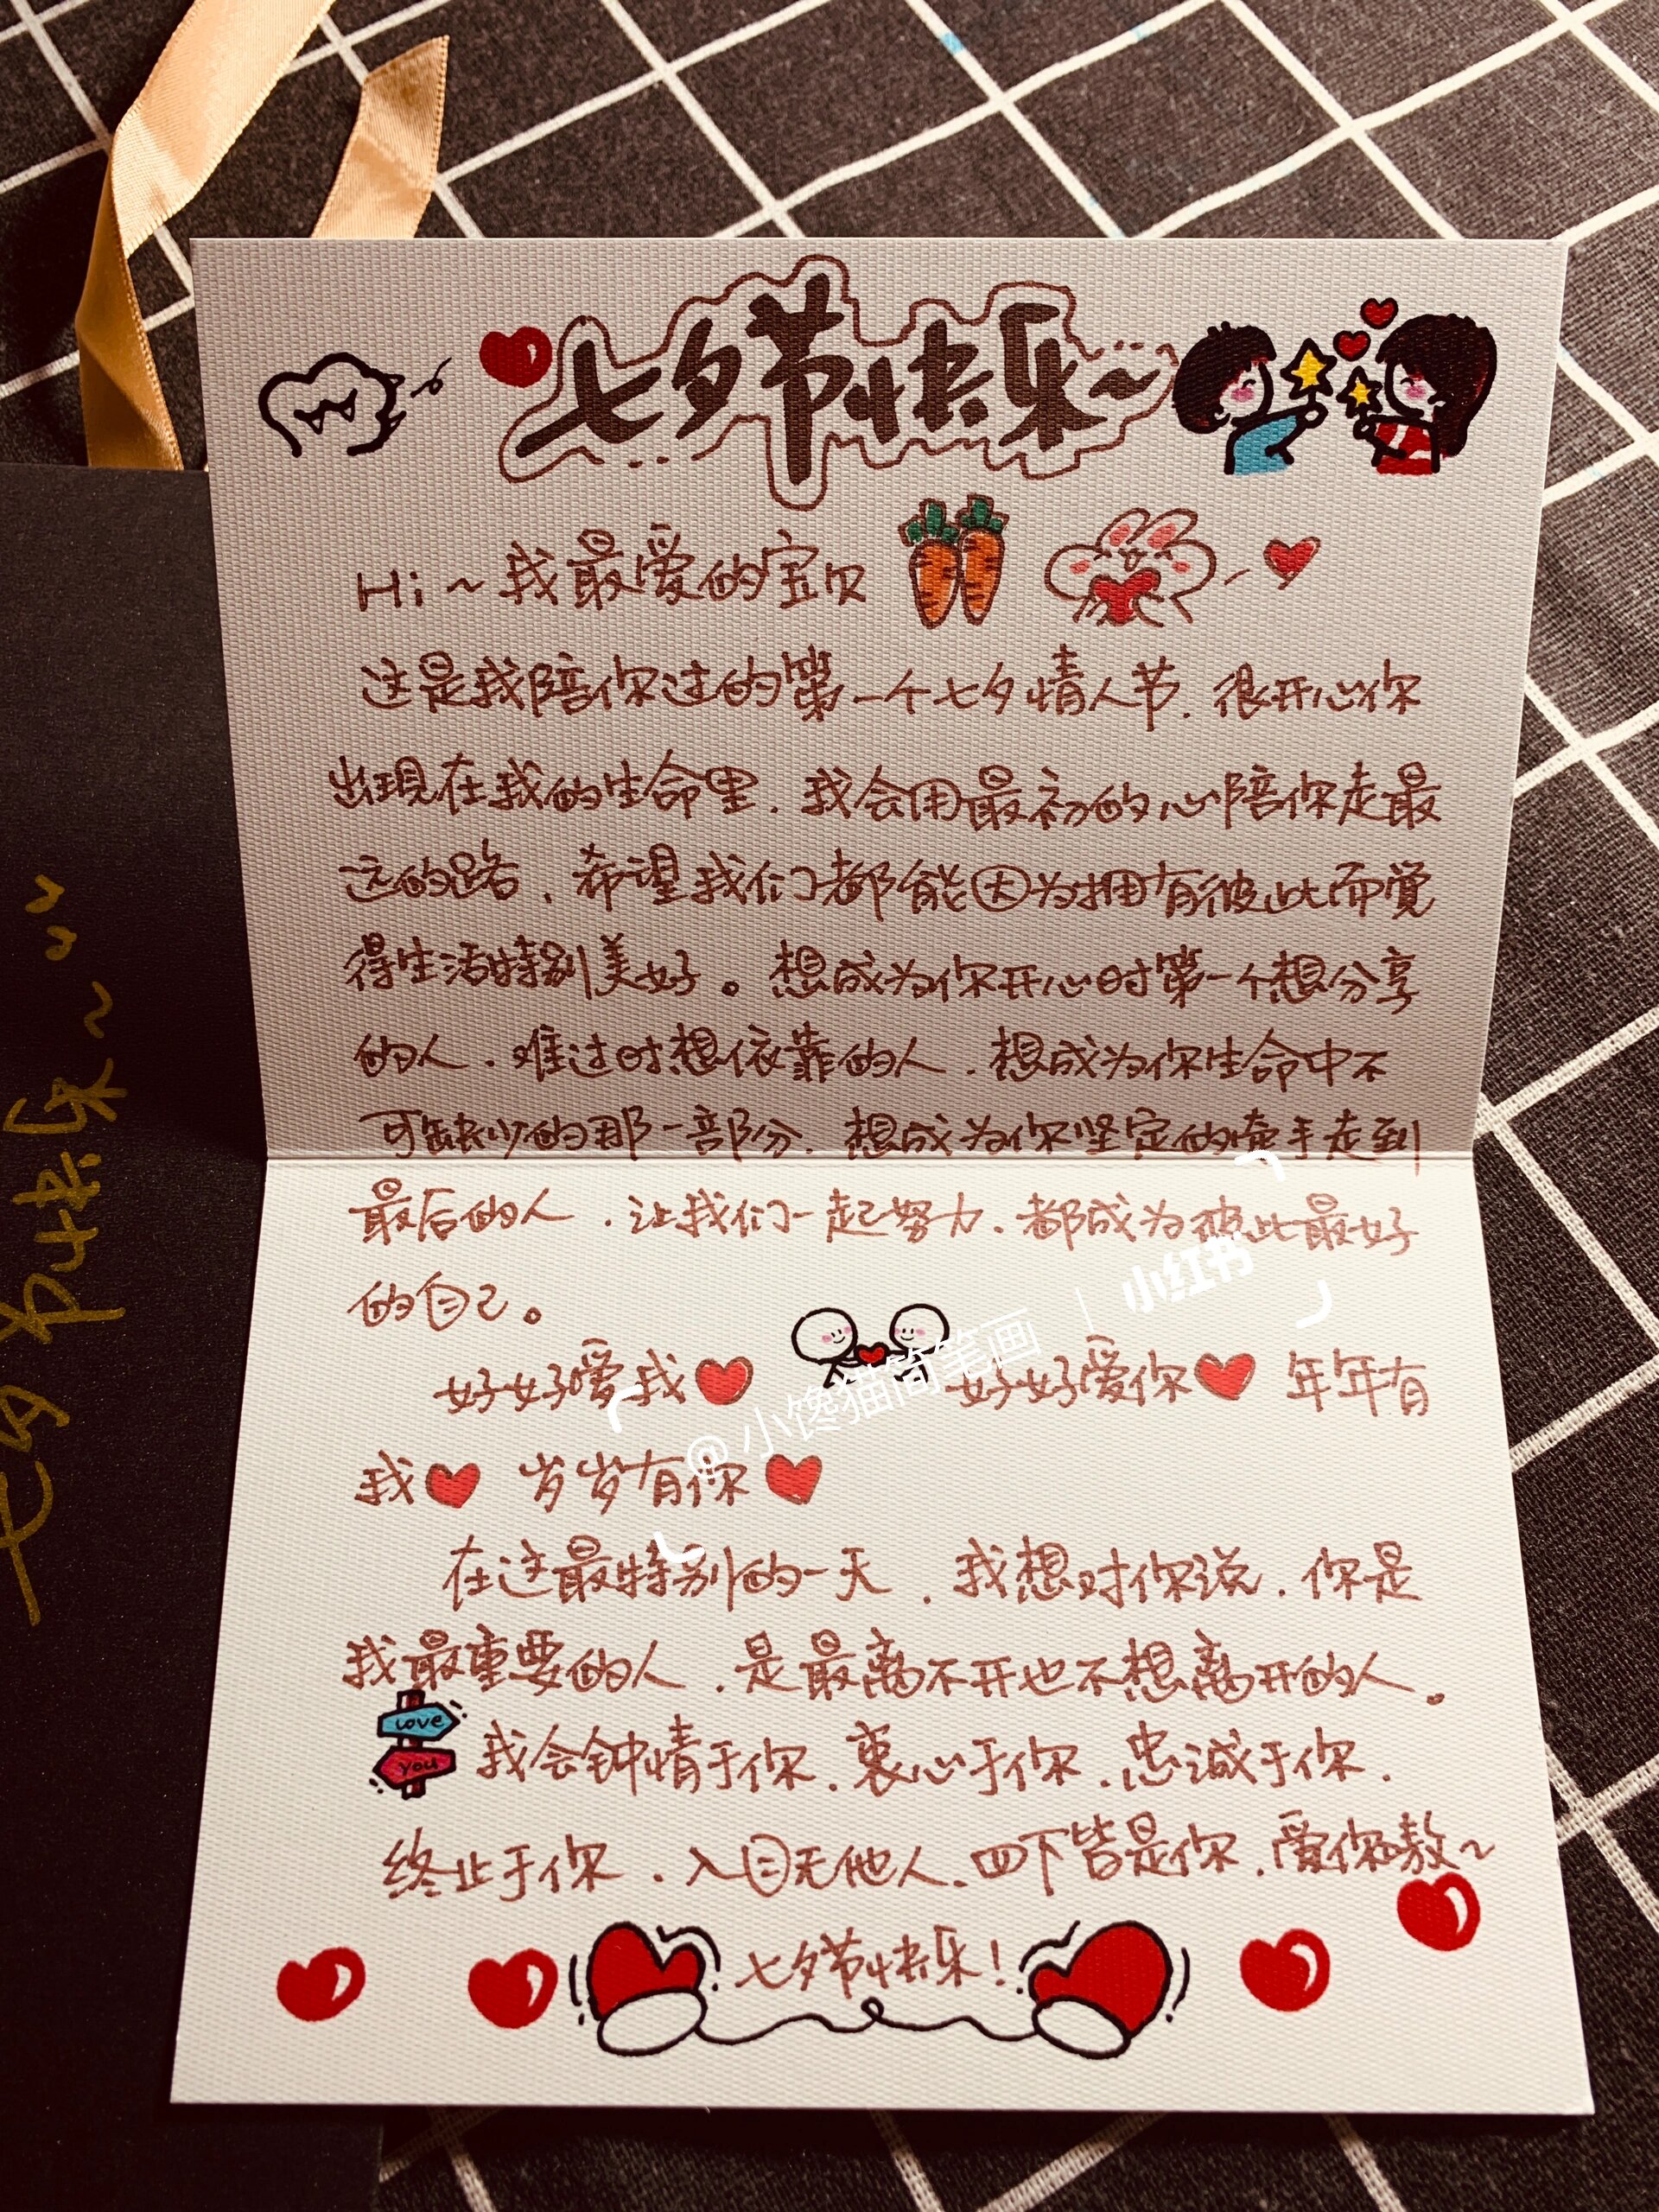 七夕节快乐~
Hi~我最爱的宝贝
这是我陪你过的第一个七夕情人节.很开心你
出现在我的生命里.我会用最初的心陪你走最
远的路、希望我们都能因为拥有彼此而觉
得生活特别美好。想成为你开心时第一个想分享
的人.难过时想依靠的人.想成为你生命中不
可缺少的那一部分.想成为你坚定的牵手走到
最后的人.让我们一起努力、都成为彼此最好
的自己。
好好爱我 好好爱你 年年有
我 岁岁有你
在这最特别的一天.我想对你说.你是
我最重要的人.是最离不开也不想离开的人。
love
you
我会钟情于你.衷心于你.忠诚于你.
终止于你.入目无他人、四下皆是你.爱你嗷~
七夕节快乐!
七夕节快乐~
小红书
@小馋猫简笔画